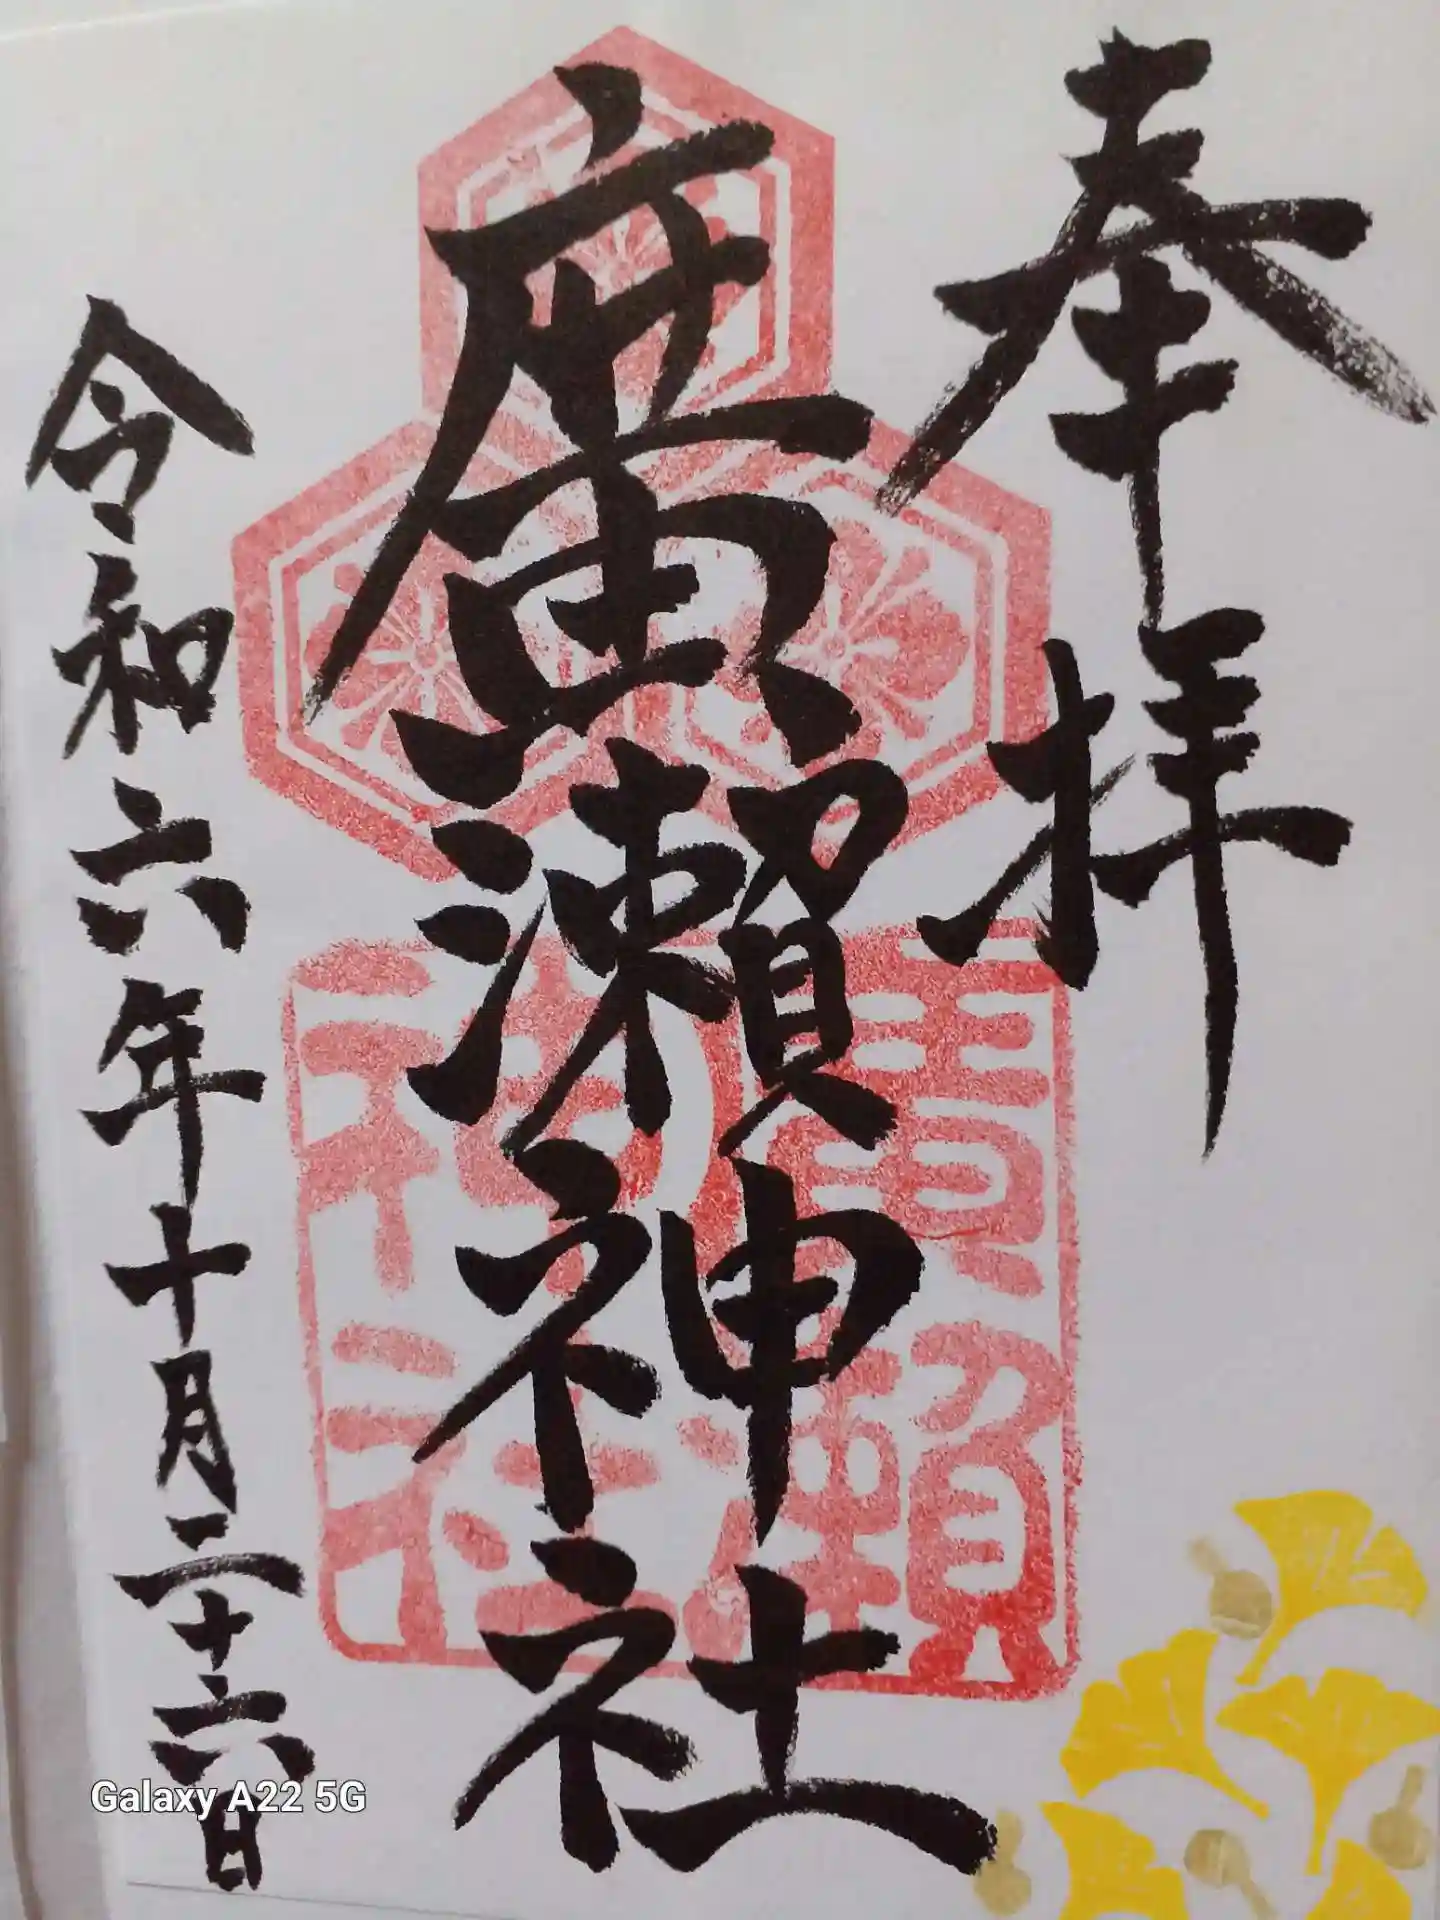 奉拝
廣瀬神社
令和六年十月二十六日
廣瀬神社
Galaxy A22 5G